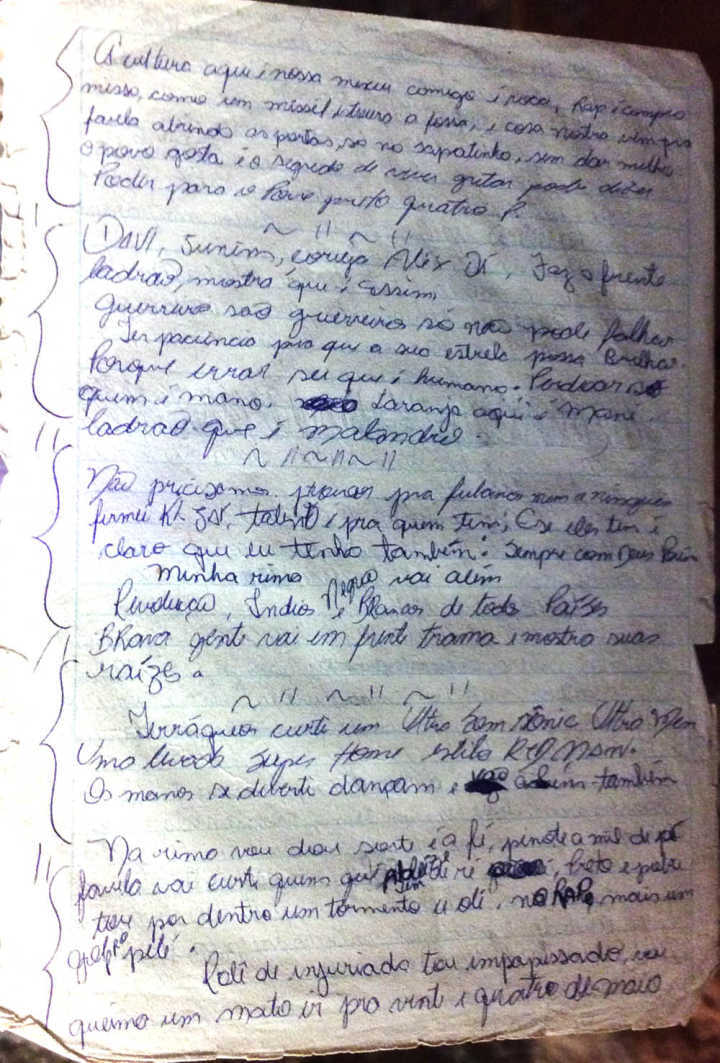 A cultura aqui é nossa mexeu comigo é roça, Rap é compro
misso, como um míssil a fossa, e cosa nostra vem pra
favela abrindo as portas, só no sapatinho, sem dar milho
o povo gosta é o segredo de viver gritar pode dizer
Poder para o Povo preto quatro P.
~ 11 ~ 11
1 DAVI, coruja Alex Di, Faz a frente
ladrão, mostra que é assim
guerreiro são guerreiros só não pode falhar
Ter paciência pra que a sua estrela possa Brilhar.
Porque errar sei que é humano. Perdoar só
quem é mano. Laranja aqui é mané
ladrão que é malandro.
~ 11 ~ 11 ~ 11
Não precisamos provar pra fulanos nem a ninguém
firmei talento é pra quem tem; E se eles tem é
claro que eu tenho também. Sempre com Deus
Minha rima Negra vai além
Índios e Brancos de todo Países
BRava gente vai em frente trama e mostra suas
raízes.
~ 11 ~ 11 ~ 11
Terráqueos curti um Ultra Som sônic Ultra Men
Uma levada Super Home estilo
Os manos se diverti dançam e também
Na rima vou dar sorte é a fé, pinote a mil de pé
favela vai curti quem de ré, Preto e pobre
tou por dentro um tormento u olé, no RAP, mais um
pelé.
Rolê de injuriado tou vou
queima um mato ir pra vinte e quatro de maio